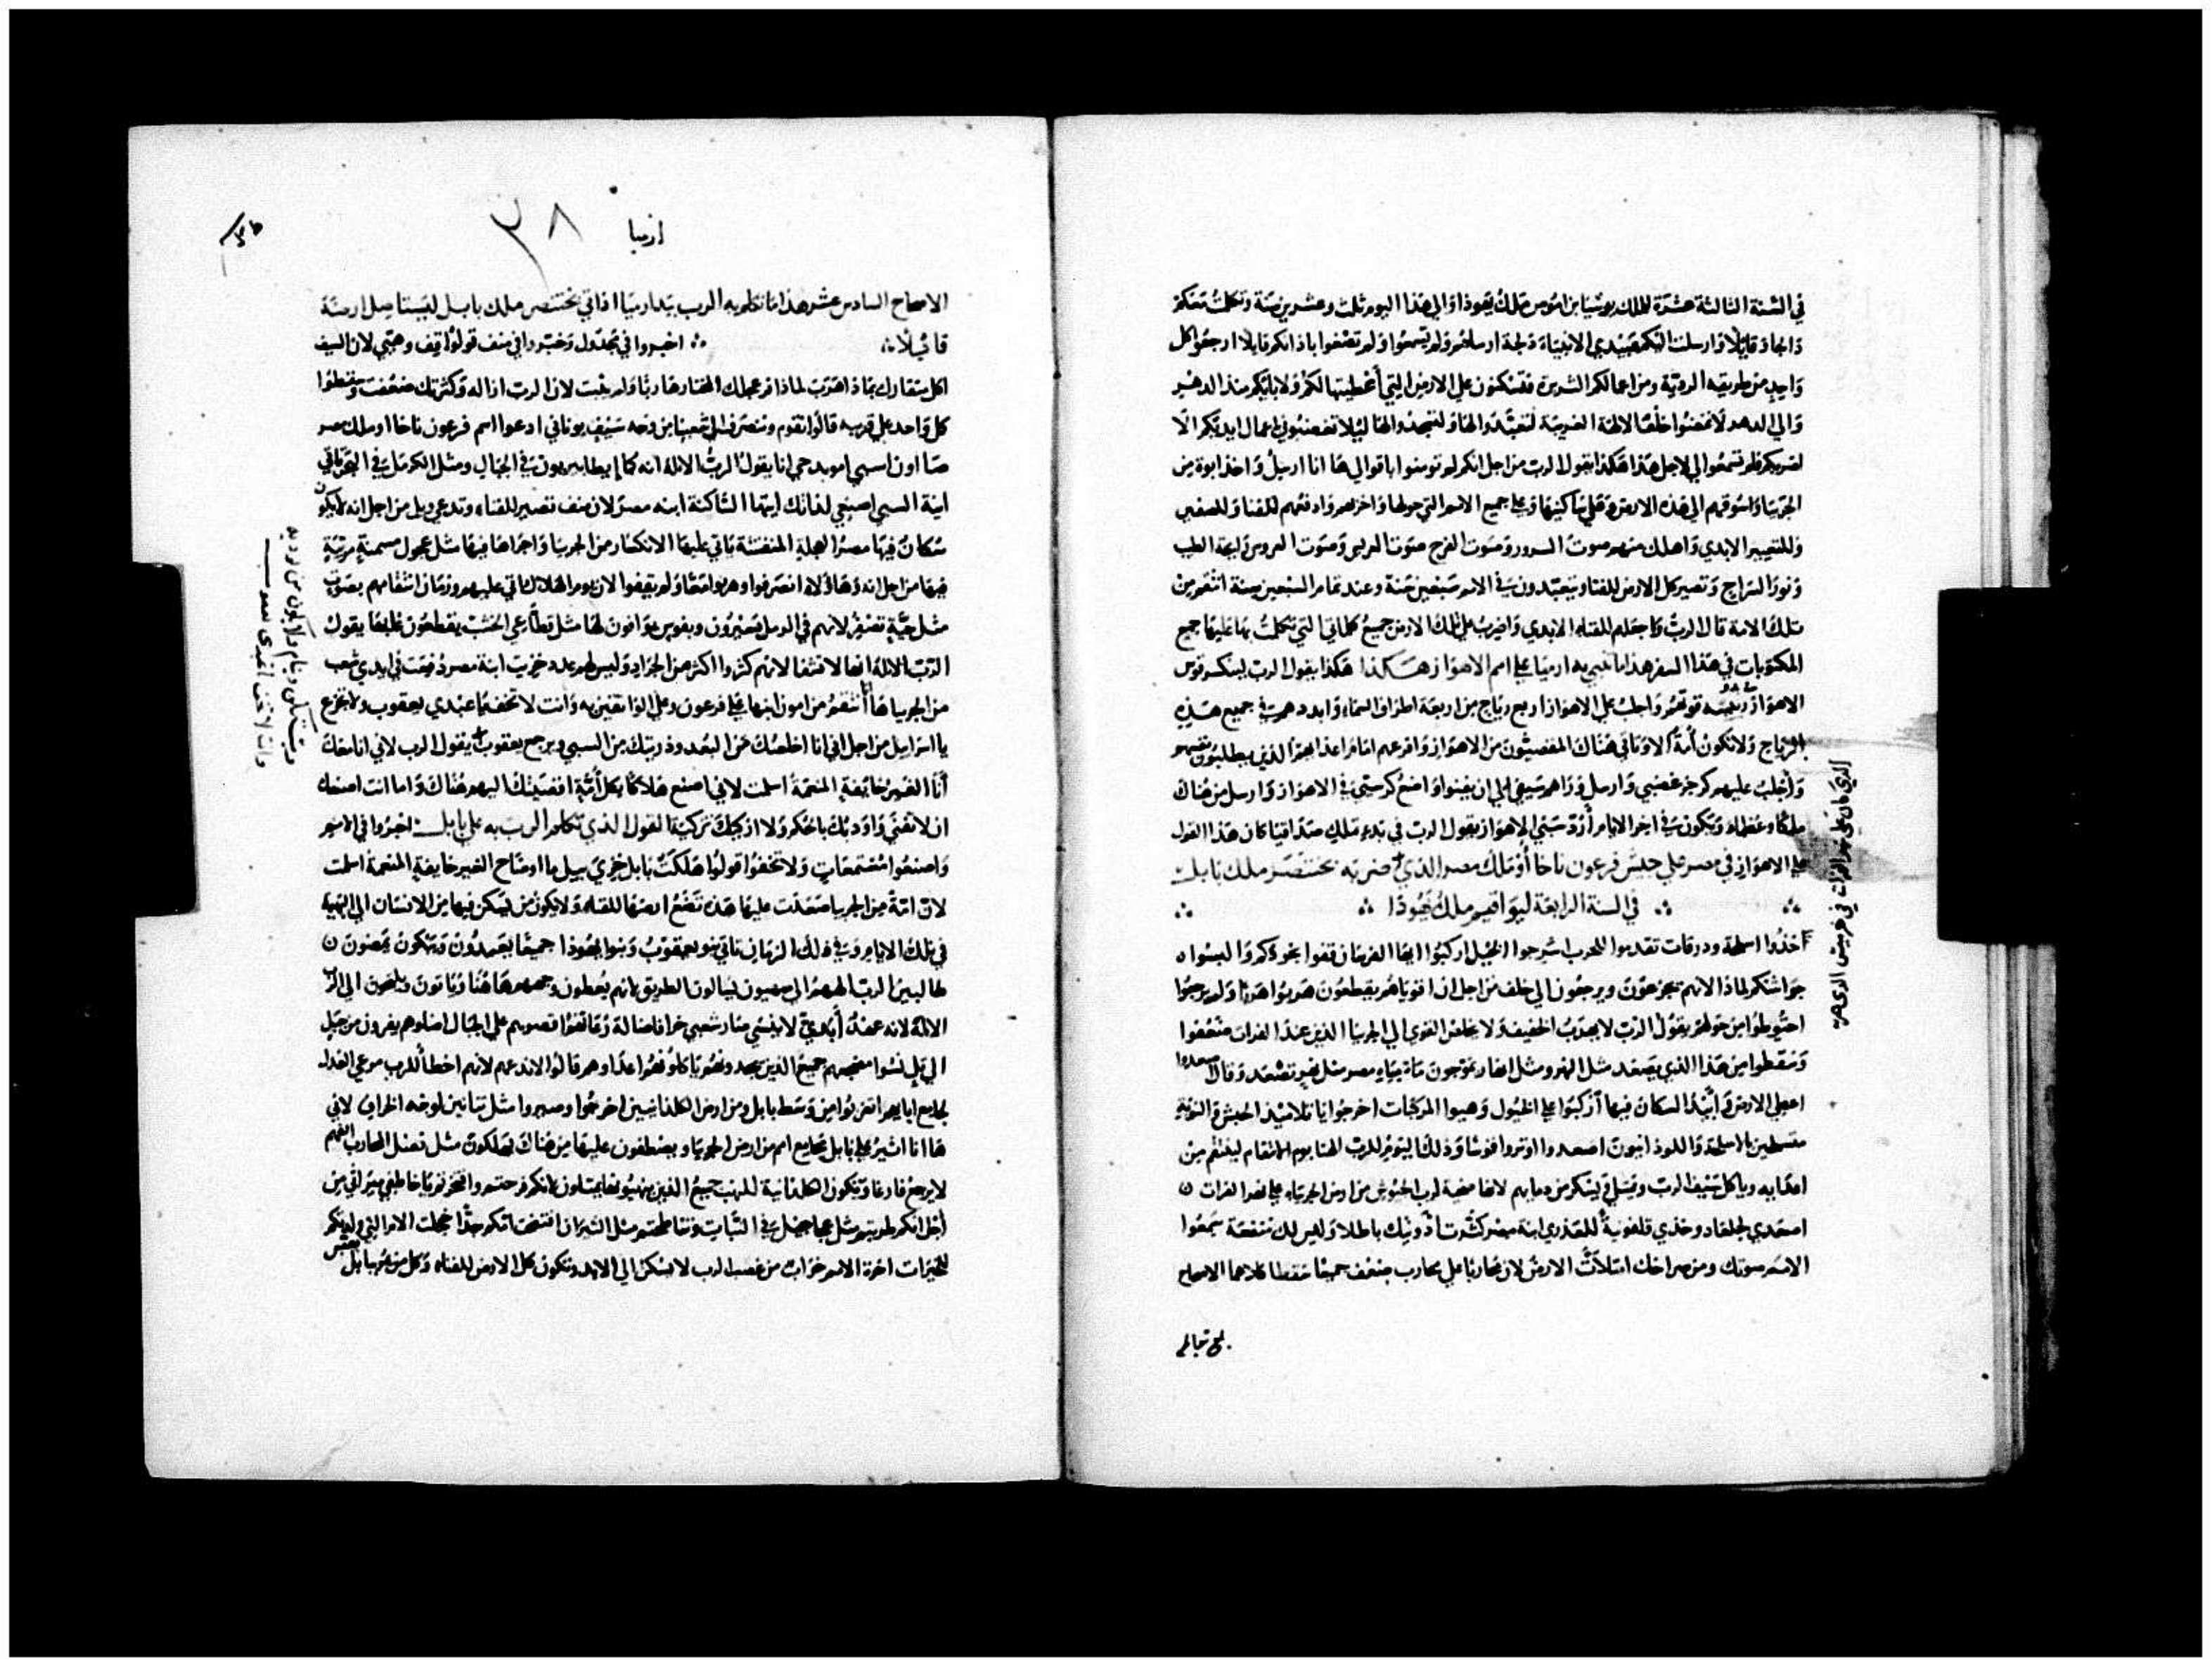 في السنة الثالثة عشرة للملك يوشيا ابن اموس ملك يهوذا والى هذا اليوم ثلث وعشرين سنة وتكلمت معكم
قايلا وارسلت اليكم عبيدي الانبياء دلجة ارسلتهم ولم تسمعوا ولم تصغوا باذانكم قايلا ارجعوا كل
واحد من طريقه الردية ومن اعمالكم الشريرة فتسكنون على الارض التي أعطيتها لكم ولابايكم منذ الدهر
والى الدهر لا تمضوا خلف الالهة الغريبة لتعبدوا لها ولتسجدوا لها ليلا تغضبوني باعمال ايديكم
لضربكم فلم تسمعوا لي لاجل هذا هكذا يقول الرب من اجل انكم لم تومنوا باقوالي ها انا ارسل واخذ ابوة من
الجربيا واسوقهم الى هذه الارض وعلى ساكنيها وعلى جميع الامم التي حولها واخربهم وادفعهم للفناء وللصفير
وللتعيير الابدي واهلك منهم صوت السرور وصوت الفرح صوت العريس وصوت العروس رايحة الطيب
ونور السراج وتصير كل الارض للفناء ويتعبدون في الامم سبعين سنة وعند تمام السبعين سنة انتقم من
تلك الامة قال الرب واجعلهم للفناء الابدي واضرب على تلك الارض جميع كلماتي التي تكلمت بها عليها جميع
المكتوبات في هذا السفر هذا ما تنبى به ارميا على امم الاهواز هكذا يقول الرب لينكسر قوس
الاهواز توتهم واجلب على الاهواز اربع رياح من اربعة اطراف السماء وابددهم في جميع هذه
الرياح ولا تكون أمة لا وتاتي هناك المقصيون من الاهواز وافزعهم امام اعدايهم الذين يطلبون نفسهم
وأجلب عليهم كرجز غضبي وارسل وراهم سيفي الى ان يفنوا واضع كرسيي في الاهواز وارسل من هناك
ملكا وعظماء وتكون في اخر الايام أرد سبي الاهواز يقول الرب في بدء ملك صداقيا كان هذا القول
على الاهواز في مصر على جيش فرعون ناخا أو ملك مصر الذي ضربه بختنصر ملك بابل
في السنة الرابعة ليواقيم ملك يهوذا
خذوا اسلحة ودرقات تقدموا للحرب اسرجوا الخيل اركبوا ايها الفرسان قفوا بخوذكم والبسوا
جواشنكم لماذا لانهم يجزعون ويرجعون الى خلف من اجل ان اقوياهم يقطعون هربوا هربا ولم يرجعوا
احتوطوا من حولهم يقول الرب لا يهرب الخفيف ولا يخلص القوي الى الجربيا الذين عند الفرات ضعفوا
وسقطوا من هذا الذي يصعد مثل النهر ومثل انهار تموجون ماة مياه مصر مثل نهر تصعد وقال
اغطي الارض وأبيد السكان فيها أركبوا على الخيول وهيوا المركبات اخرجوا يا تلاميذ الحبش والنوبة
متسلحين بالاسلحة واللوذانيون اصعدوا اوتروا قوسا وذلك اليوم للرب الهنا يوم الانتقام لينتقم من
اعدايه وياكل سيف الرب ويشبع ويسكر من دمايهم لانها ضحية لرب الجنوش من ارض الجربياء على نهر الفرات
اصعدي لجلعاد وخذي قلفونية للعذري ابنة مصر كثرت أدويتك باطلا وليس لك منفعة سمعوا
الامم صوتك ومن صراخك امتلات الارض لان محاربا على محارب ضعف جميعا سقطا كلاهما الاصحاح
ارميا
٣٨
الاصحاح السادس عشر هذا ما تكلم به الرب بيد ارميا اذ اتي بختنصر ملك بابل ليستاصل ارض
قايلا اخبروا في مجدول وخبروا في منف قولوا قف وهيي لان السيف
اكل متقاربك لماذا هرب لماذا فر عجلك المختار هاربا ولم يثبت لان الرب ازاله وكثرتك ضعفت وسقطوا
كل واحد على قريبه قالوا نقوم وننصرف الى شعبنا من وجه سيف يوناني ادعوا اسم فرعون ناخا او ملك مصر
حي انا يقول الرب الاله انه كايطابيريون في الجبال ومثل الكرمل في البحر ياتي
انية السبي اصنعي لذاتك ايتها الساكنة ابنة مصر لان منف تصير للفناء وتدعى ويل من اجل انه لا يكون
سكان فيها مصر العجلة المنقشة ياتي عليها الانكسار من الجربيا واجراها فيها مثل عجول مسمنة مرتبة
فيها من اجل انه وهاولاء انصرفوا وهربوا معا ولم يقفوا لان يوم اهلاك اتى عليهم وزمان انتقامهم بصوت
مثل حية تصفر لانهم في الرمل يسيرون وبفوس يوافون لها مثل قطاعي الخشب يقطعون غلبها يقول
الرب الاله انها لا تشفا لانهم كثروا اكثر من الجراد وليس لهم عدد خزيت ابنة مصر دفعت في ايدي شعب
من الجربيا ها أنتقم من امون ابنها على فرعون وعلى الواثقين به وانت لا تخف يا عبدي يعقوب ولا تجزع
يا اسراييل من اجل اني انا اخلصك من البعد وذريتك من السبي ويرجع يعقوب يقول الرب لاني انا معك
أنا الغير خايفة المنعمة اسلمت لاني اصنع هلاكا بكل أمة اقصيتك اليهم هناك واما انت اصنعك
ان لا تفنى واودبك باحكم ولا ازكيك تزكية القول الذي تكلم الرب به على بابل اخبروا في الامم
واصنعوا مستمعات ولا تخفوا قولوا هلكت بابل خزي بيل ماروداخ الغير خايفة المنعمة اسلمت
لان امة من الجربيا صعدت عليها هذه تضع ارضها للفناء ولا يكون من يسكن فيها من الانسان الى البهيمة
في تلك الايام وفي ذلك الزمان تاتي بنو يعقوب وبنوا يهوذا جميعا يصعدون ويبكون يمضون
طالبين الرب الههم الى صهيون ليسالون الطريق لانهم يعطون وجههم هاهنا وياتون ويلتجون الى الرب
الاله لانه عهد أبدي لا ينسى صار شعبي خرافا ضالة رعاتهم اقصوهم على الجبال اضلوهم يفرون من جبل
الى تل نسوا مضجعهم جميع الذين يجدونهم ياكلونهم اعداوهم قالوا لا ندعهم لانهم اخطأ للرب مرعى العدل
لجامع ابايهم اغربوا من وسط بابل ومن ارض الكلدانيين اخرجوا وصيروا مثل تنانين لوجه الخراف لاني
ها انا اثير على بابل مجامع امم من ارض الجربيا ويصطفون عليها من هناك يهلكون مثل نصل المحارب الفهم
لا يرجع فارغا وتكون الكلدانية للنهب جميع الذين ينهبونها يمتلون لانكم فرحتم وافتخرتم يا خاطفي ميراثي من
أجل انكم طربتم مثل عجاجيل في النبات وتناطحتم مثل الثيران افتضحت امكم جدا خجلت الام التي ولدتكم
للخيرات اخرة الامم خراب من غضب الرب لا تسكن الى الابد وتكون كل الارض للفناء وكل من يمر ببابل